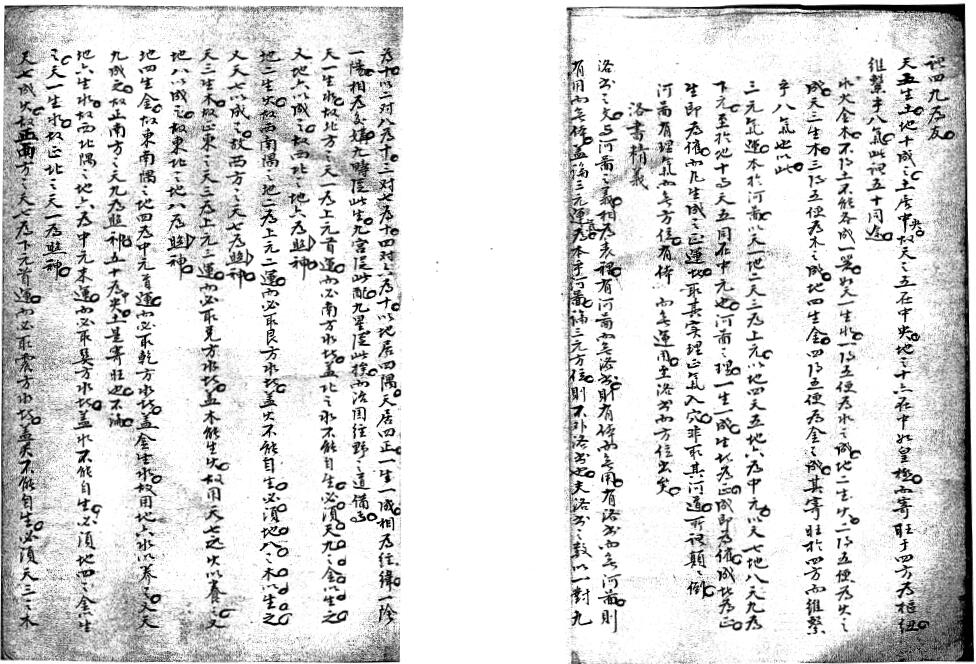 說四九為友
天五生土地十成之土居中故天之五在中央地之十亦在中如皇極而寄旺于四方為樞紐
維繫乎八氣此謂五十同途
水火金木不得土不能各成一器如天一生水一得五便為水之成地二生火二得五便為火之
成天三生木三得五便為木之成地四生金四得五便為金之成其寄旺於四方而維繫
乎八氣也以此
三元氣運本於河圖以天一地二天三為上元以地四天五地六為中元以天七地八天九為
下元至於地十與天五同在中元也河圖之理一生一成生此為正成即為催成此為正
生即為催而凡生成之正運故取其實理正氣入穴非取其河道所謂顛之倒
河圖有理氣而無方位有體而無運用至洛書而方位出矣
洛書精義
洛書之文與河圖之義相為表裡有河圖而無洛書則有體而無用有洛書而無河圖則
有用而無體蓋論三元運氣本乎河圖論三元方位則不外洛書也夫洛書之數以一對九
為十以二對八為十三對七為十四對六為十以地居四隅天居四正一生一成相為經緯一陰
一陽相為交媾九疇從此生九宮從此配九星從此推而治國經野之道備焉
天一生水故北方之天一為上元首運而必南方水於蓋北之水不能自生必須天九之金以生之
又地六以成之故西北之地六為照神
地二生火故西南隅之地二為上元二運而必取艮方水於蓋火不能自生必須地八之木以生之
又天七以成之故西方之天七為照神
天三生木故正東之天三為上元三運而必取兌方水於蓋木能生火故用天七之火以養之又
地八以成之故東北之地八為照神
地四生金故東南隅之地四為中元首運而必取乾方水於蓋金生水故用地六水以養之又天
九成之故正南方之天九為照神五十為央土是寄旺也不論
地六生水故西北隅之地六為中元末運而必取巽方水於蓋水不能自生必須地四之金生
之天一生水故正北之天一為照神
天七成火故正西方之天七為下元首運而必取震方水於蓋火不能自生必須天三之木